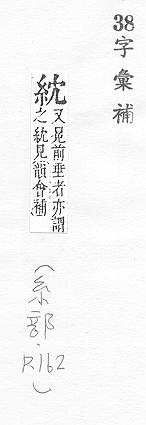 38字彙補
紞
又冕前垂者亦謂
之紞見韻會補
(糸部.P.162)